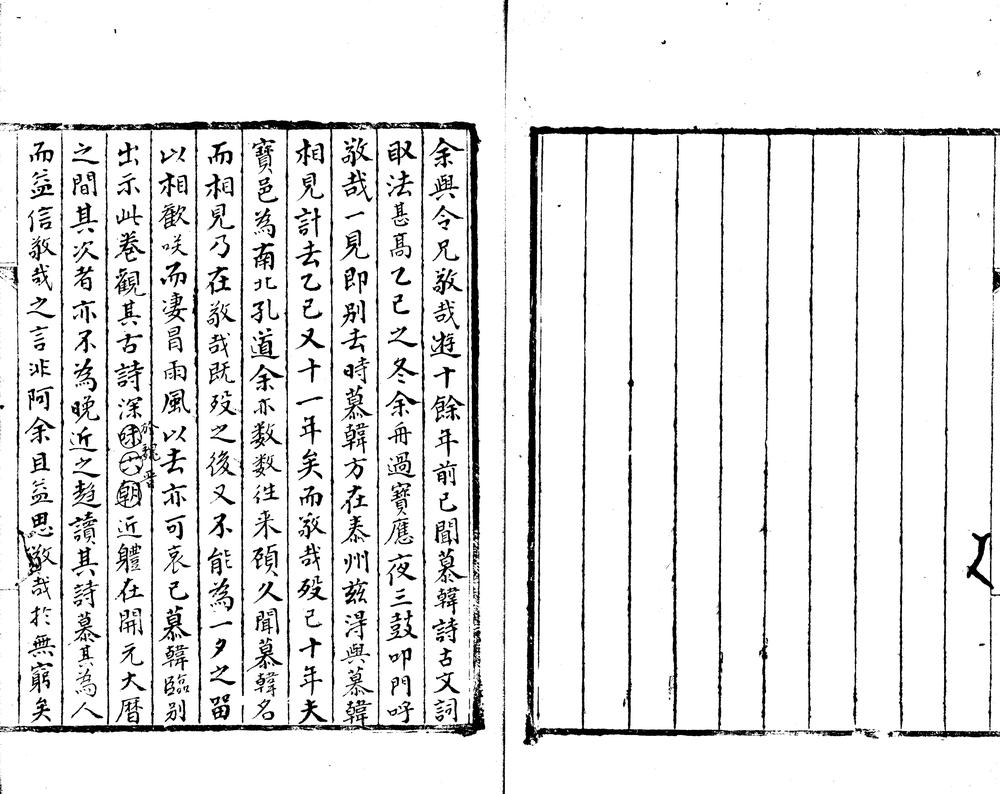 余與令兄敬哉遊十餘年前已聞慕韓詩古文詞
取法甚髙乙巳之冬余舟過寶應夜三鼓叩門呼
敬哉一見即别去時慕韓方在泰州兹淂與慕韓
相見計去乙巳又十一年矣而敬哉殁已十年夫
寶邑為南北孔道余亦数数徃来頋久聞慕韓名
而相見乃在敬哉既殁之後又不能為一夕之留
以相歡咲而凄冐雨風以去亦可哀已慕韓臨别
出示此卷觀其古詩深味六朝近軆在開元大暦
於魏晋
之間其次者亦不為晚近之趋讀其詩慕其為人
而益信敬哉之言非阿余且益思敬哉扵無窮矣